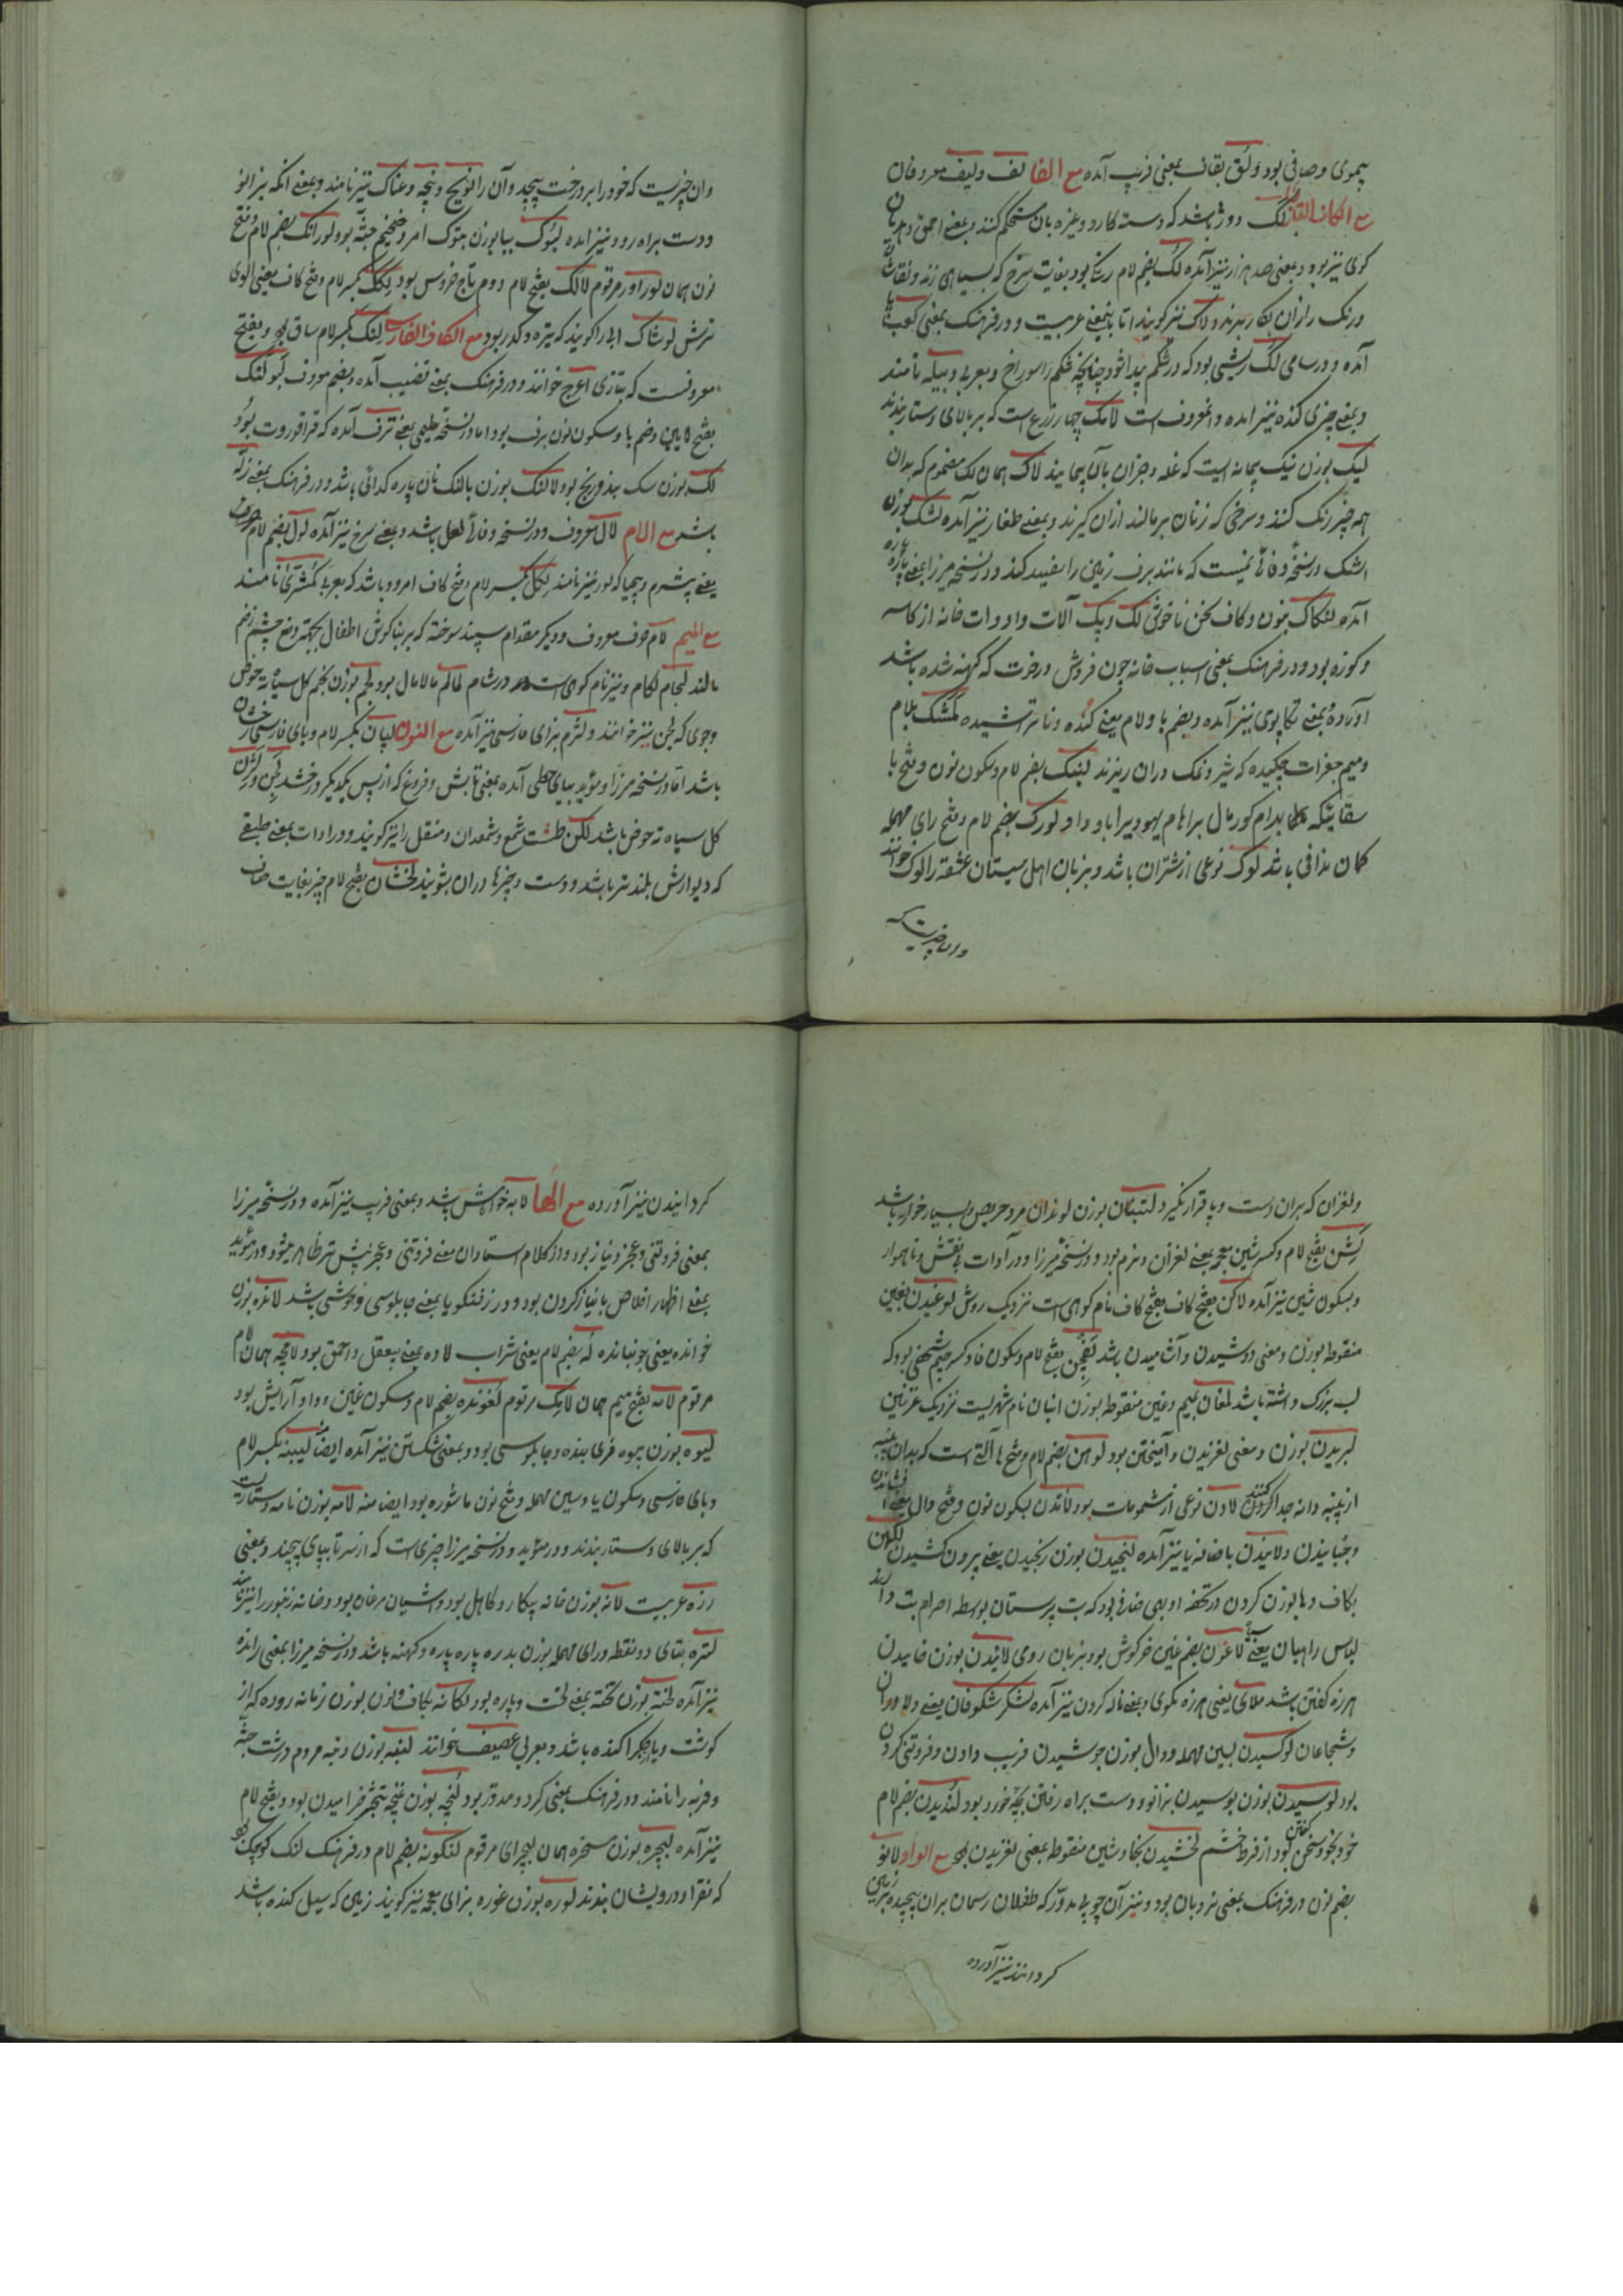 پیموی وصافی بود ولق بقاف بمعنی فریب آمده مع الفا لف ولیف معروفان
مع الکاف التازی لک دوژ باشد که دسته کارد وغیره بان مستحکم کنند وبمعنی احمق وهذیان
کوی نیز بود وبمعنی صد هزار نیز آمده لک بضم لام رنکی بود بغایت سرخ که بسیاهی زند ونقاشان
ورنک رازان بکار برند ولاک نیز کویند اما باینمعنی عربیست ودر فرهنک بمعنی کعب
آمده ودر سامی لک ریشی بود که در شکم پیدا شود چنانچه شکم را سوراخ وبعربی دبیله نامند
وبمعنی چیزی کنده نیز آمده ومعروف است لامک چهار زرع است که بر بالای دستار بندند
لیک بوزن نیک پیمانه ایست که غله وجزان بآن پیمایند لاک همان لک مضموم که بدان
همه چیز رنک کنند وسرخی که زنان بر مالند ازان کیرند وبمعنی طغار نیز آمده لشک بوزن
اشک در نسخه وفائی نمیست که مانند برف زمین را سفید کند ودر نسخه میرزا بمعنی پاره
آمده لنکاک بنون وکاف سخن ناخوش لک وپک آلات وادوات خانه از کاسه
وکوزه بود ودر فرهنک بمعنی اسباب خانه چون فروش ورخت که کهنه شده باشد
آورده وبمعنی تکاپوی نیز آمده وبضم با ولام یعنی کنده وناتراشیده لمشک بلام
ومیم جغرات چکیده که شیر ونمک دران ریزند لبنک بضم لام وسکون نون وفتح با
لورک بضم لام وفتح رای مهمله
کمان ندافی باشد لوک نوعی از شتران باشد وبزبان اهل سیستان عشقه را لوک خوانند
وان چیزیست که
وان چیزیست که خود را بر درخت پیچد وآن را نویج ونیچه وعناک نیز نامند وبمعنی انکه بزانو
ودست براه رود نیز آمده لبوک بیا بوزن متوک امرد ضخیم جثه بود لورانک بضم لام وفتح
نون همان لوراور مرقوم لالک بفتح لام دوم تاج خروس بود لکک بکسر لام وفتح کاف یعنی الوی
ترش لوشاک آبی را کویند که تیره وکدر بود مع الکاف الفارسی لنک بکسر لام ساق بود وبفتح
معروفست که بتازی اعرج خوانند ودر فرهنک بمعنی قضیب آمده وبضم معروف لبولنک
بفتح لامین وضم با وسکون نون برف بود اما در نسخه حلیمی بمعنی ترف آمده که قراقوروت بود
لک بوزن سک بند ورنج بود لالنک بوزن بالنک نان پاره کدائی باشد ودر فرهنک بمعنی زله
باشد مع اللام لال معروف ودر نسخه وفائی لعل باشد وبمعنی سرخ نیز آمده لول بضم لام معروف
یعنی بیشرم وبیحیا که لور نیز نامند لکل بکسر لام وفتح کاف امرود باشد که بعربی کمثری نامند
مع المیم لام حرف معروف ودیکر مقدام سپند سوخته که بر بناکوش اطفال بجهه دفع چشم زخم
مالند لجام لکام ونیز نام کوهی است در شام لمالم مالامال بود لجم بوزن نجم کل سیاه ته حوض
وجوی که لجن نیز خوانند ولثرم بزای فارسی نیز آمده مع النون لپان بکسر لام وبای فارسی رخشان
باشد اما در نسخه میرزا ومؤید بیای حطی آمده بمعنی تابش وفروغ که از پس یکدیکر درخشد لجن ولژن
کل سیاه ته حوض باشد لکن طشت شمع وشمعدان ومنقل را نیز کویند ودر ادات بمعنی طبقی
که دیوارش بلندتر باشد ودست وچیزها دران بشویند لخشان بفتح لام چیز بغایت صاف
ولغزان که بران دست وپا قرار نکیرد لتنبان بوزن لوندان مرد حریص وبسیار خوار باشد
لشن بفتح لام وکسر شین معجمه بمعنی لغزان ونرم بود ودر نسخه میرزا ودر آدات بی نقش وناهموار
وبسکون شین نیز آمده لاکن بفتح کاف نام کوهی است نزدیک روش لوغیدن بغین
منقوطه بوزن ومعنی دوشیدن وآشامیدن باشد لفجن بفتح لام وسکون فا وکسر جیم شخصی بود که
لب بزرک داشته باشد لمغان بمیم وغین منقوطه بوزن انبان نام شهریست نزدیک غزنین
لبریدن بوزن ومعنی لغزیدن وآمیختن بود لوهین بضم لام وفتح ها آلتی است که بدان پنبه
از پنبه دانه جدا کنند لادن نوعی از مشمومات بود لاندن بسکون نون وفتح دال یعنی افشاندن
وجنبانیدن ولانیدن باضافه یا نیز آمده لنجیدن بوزن رنجیدن یعنی بیرون کشیدن لکهن
بکاف وها بوزن کردن در تحفه او بی غذائی بود که بت پرستان بواسطه احرام بت دارند
لباس راهبان یعنی سیاه لاغون بضم غین خرکوش بود بزبان رومی لائیدن بوزن خائیدن
هرزه کفتن باشد ملای یعنی هرزه مکوی وبمعنی ناله کردن نیز آمده لشکر شکوفان یعنی دلاوران
وشجاعان لوسیدن بسین مهمله ودال بوزن جوشیدن فریب دادن وفروتنی کردن
بود لوسیدن بوزن بوسیدن بزانو ودست براه رفتن بچه خورد بود لندیدن بضم لام
خود بخود سخن کفتن بود از فرط خشم لخشیدن بخا وشین منقوطه بمعنی لغزیدن بود مع الواو لانو
بضم نون در فرهنک بمعنی نردبان بود ونیز آن چوب مدور که طفلان ریسمان بران پیچیده بر زمین
کردانند نیز آورده
کردانیدن نیز آورده مع الها لابه خواهش باشد وبمعنی فریب نیز آمده ودر نسخه میرزا
بمعنی فروتنی وعجز ونیاز بود واز کلام استادان معنی فروتنی وعجز بیشتر ظاهر میشود ودر مؤید
بمعنی اظهار اخلاص با نیاز کردن بود ودر زفنکویا بمعنی چاپلوسی وخوشی باشد لانده بوزن
خوانده یعنی جنبانده له بضم لام یعنی شراب لاده بمعنی بیعقل واحمق بود لامچه همان لام
مرقوم لامه بفتح میم همان لامک مرقوم لغونده بضم لام وسکون غین وواو آرایش بود
لیوه بوزن میوه فریبنده وچاپلوسی بود وبمعنی شکستن نیز آمده ایضا لیپنه بکسر لام
وبای فارسی وسکون یا وسین مهمله وفتح نون ماشوره بود ایضا منه لامه بوزن نامه دستاریست
که بر بالای دستار بندند ودر مؤید ودر نسخه میرزا چیزی است که از سر تا بپای پیچند وبمعنی
زره عربیست لانه بوزن خانه بیکار وکاهل بود واشیان مرغان بود وخانه زنبور را نیز نامند
لتره بتای دو نقطه ورای مهمله بوزن بدره پاره پاره وکهنه باشد ودر نسخه میرزا بمعنی رانده
نیز آمده لخته بوزن تخته بمعنی لخت وپاره بود لکانه بکاف ونون بوزن زمانه روده که از
کوشت ویا جکر اکنده باشد وبعربی عصیف خوانند لنبه بوزن دنبه مردم درشت جثه
وفربه را نامند ودر فرهنک بمعنی کرد ومدور بود لنجه بوزن غنچه بتبختر خرامیدن بود وبفتح لام
نیز آمده لیچره بوزن سخره همان لیچرای مرقوم لنکونه بضم لام در فرهنک لنک کوچک بود
که فقرا ودرویشان بندند لوره بوزن غوره بزای معجمه نیز کویند زمین که سیل کنده باشد